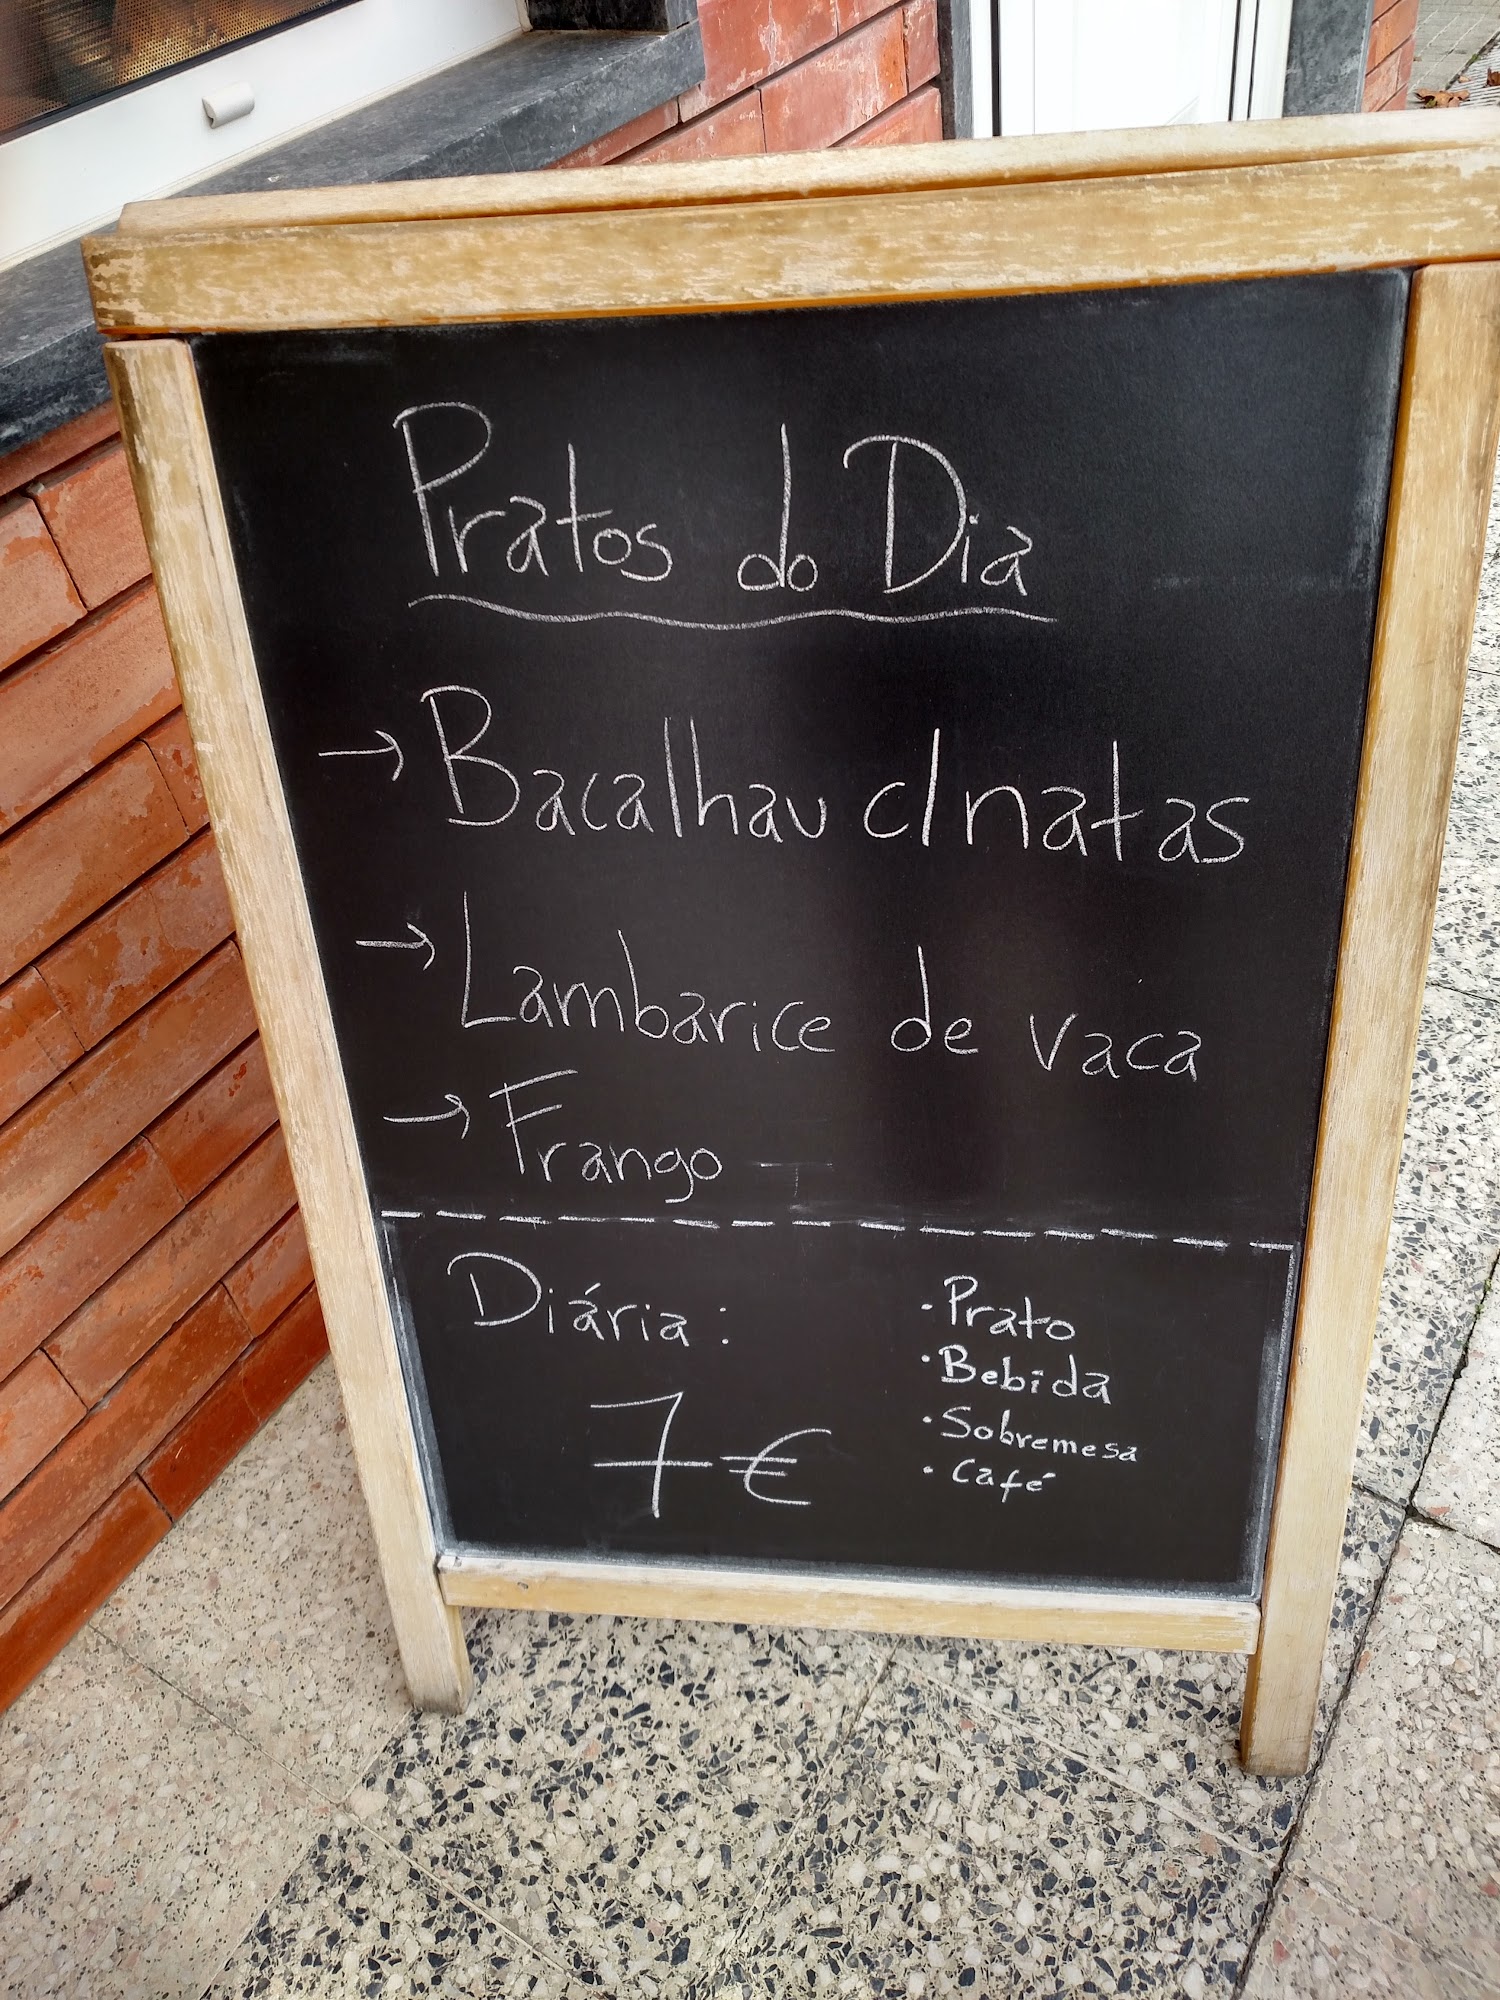 Pratos do Dia
→ Bacalhau c/ natas
→ Lambarice de vaca
→ Frango
Diária:
7€
· Prato
· Bebida
· Sobremesa
· Café